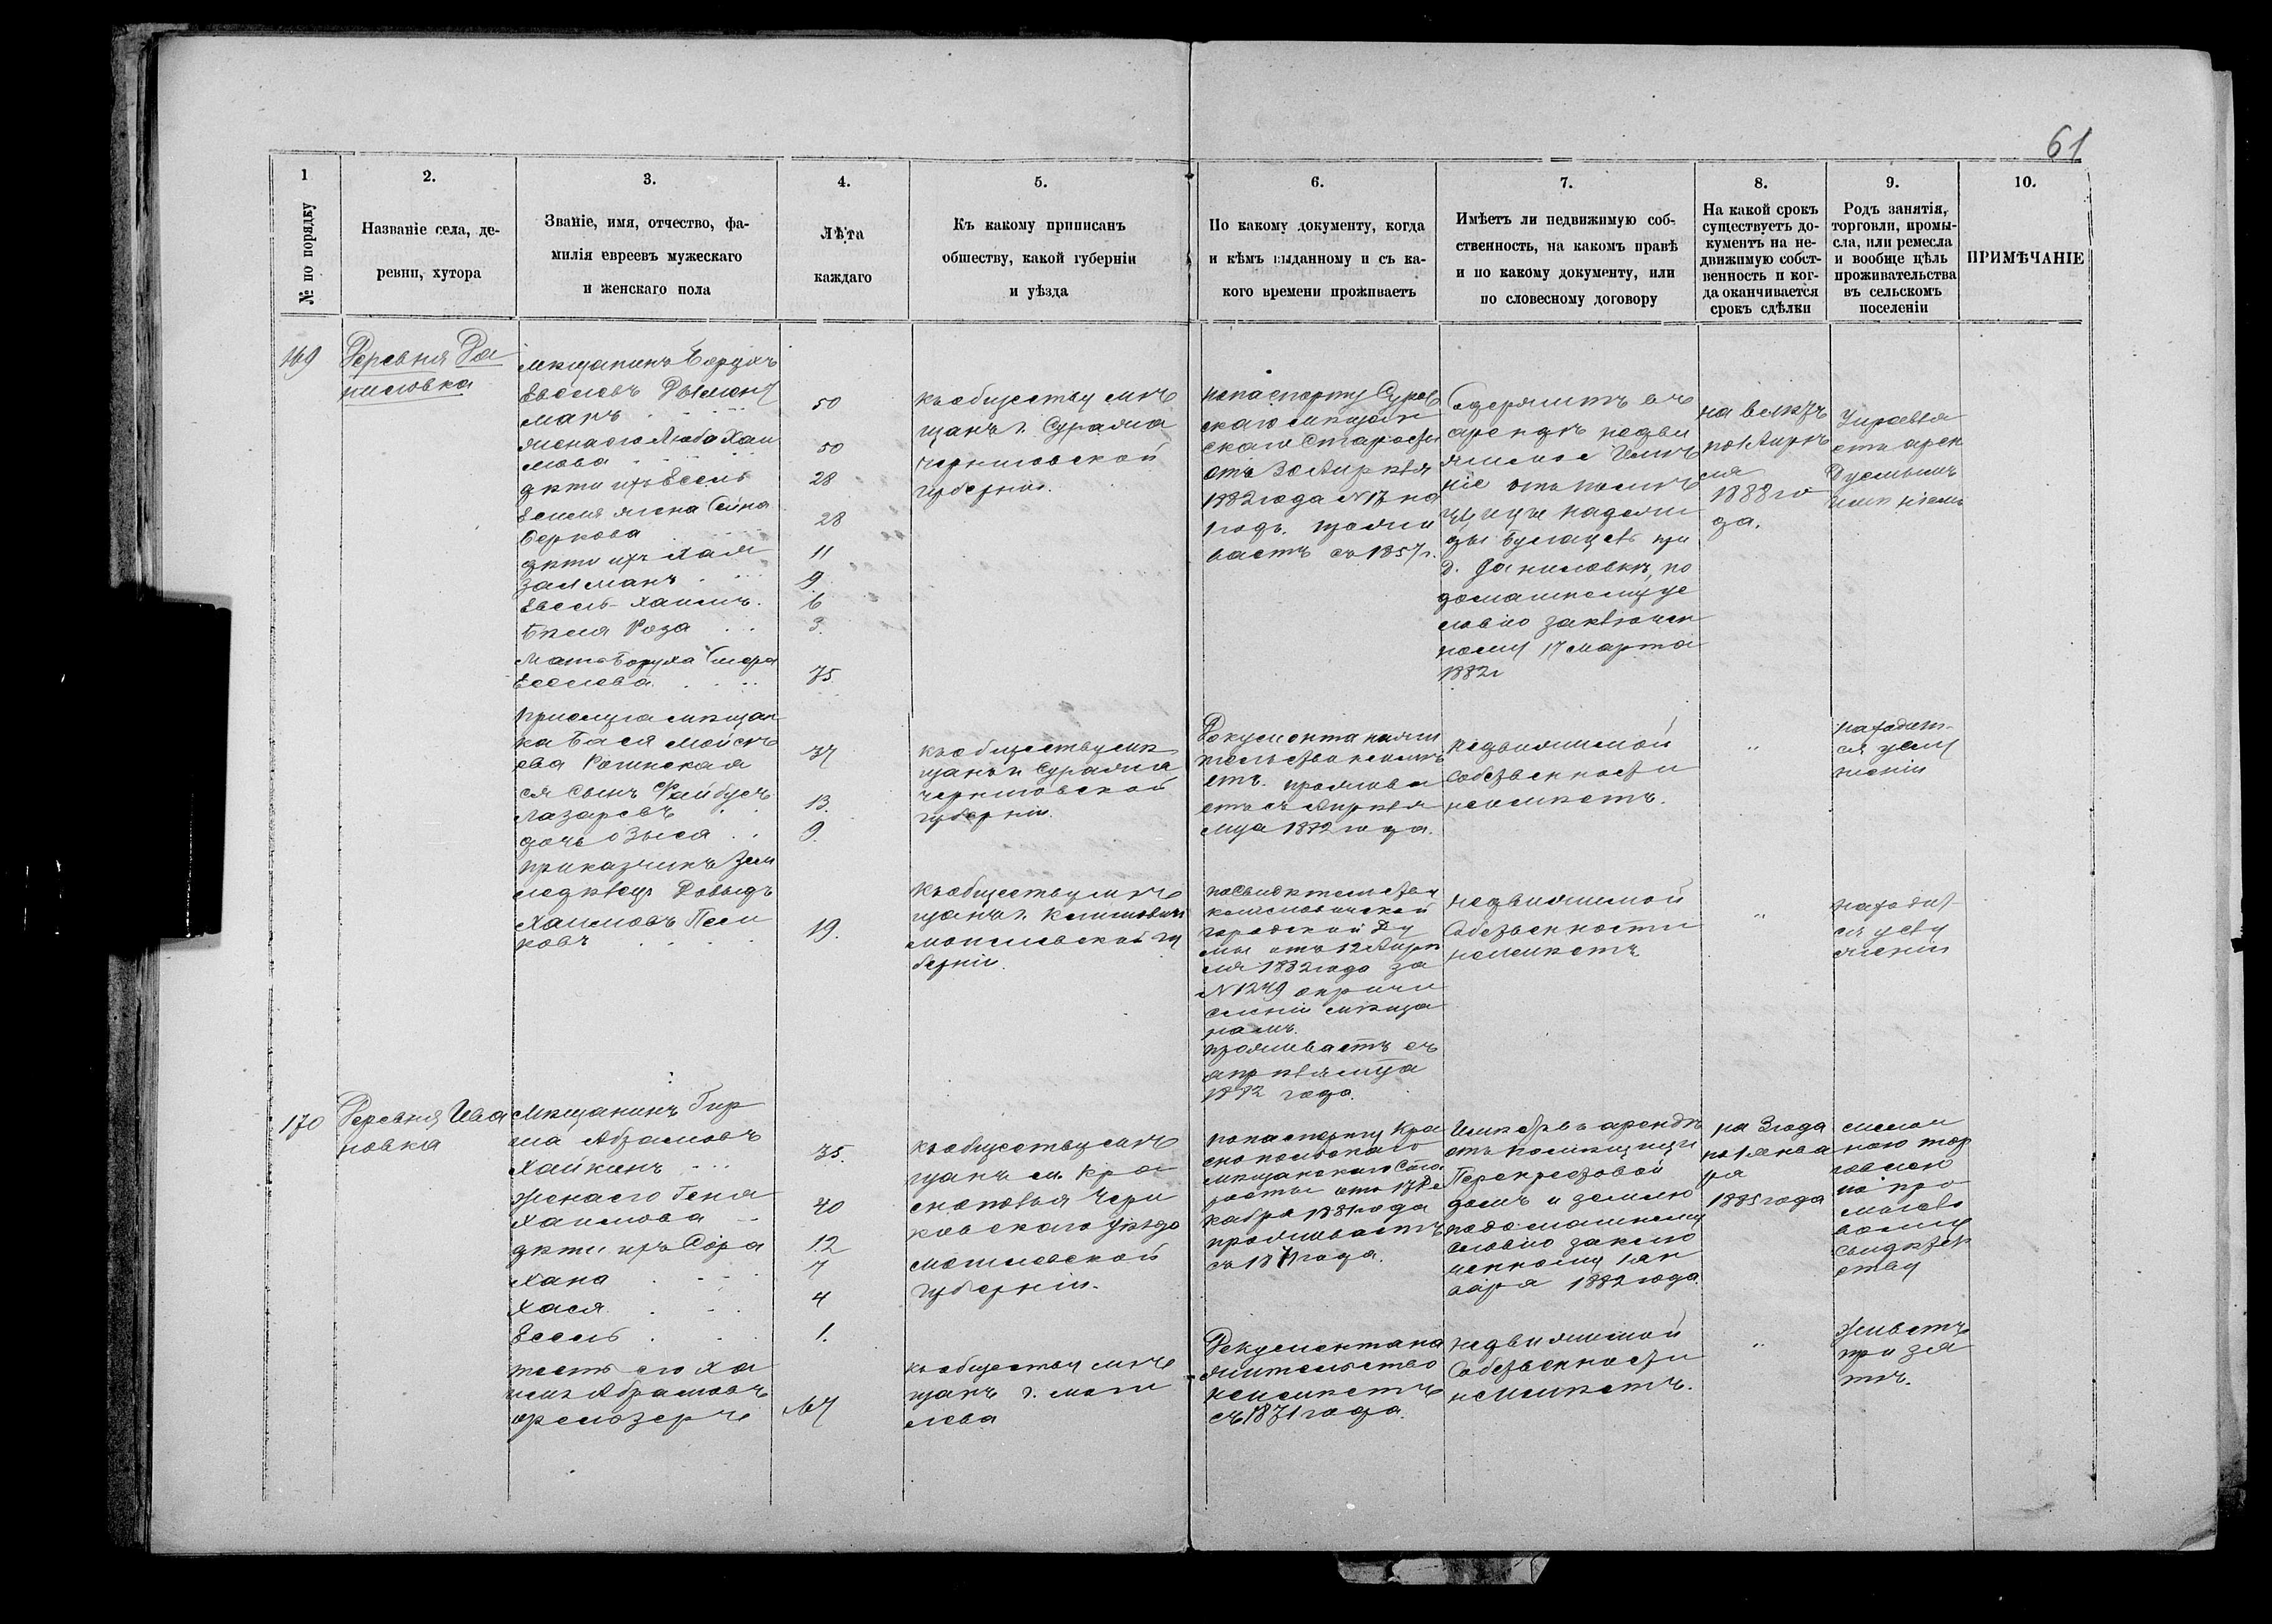 61
1
№ по порядку
2.
Названіе села, де-
ревни, хутора
3.
Званіе, имя, отчество, фа-
милія евреевъ мужескаго
и женскаго пола
4.
Лѣта
каждаго
5.
Къ какому приписанъ
обществу, какой губерніи
и уѣзда
6.
По какому документу, когда
и кѣмъ выданному и съ ка-
кого времени проживаетъ
7.
Имѣетъ ли недвижимую соб-
ственность, на какомъ правѣ
и по какому документу, или
по словесному договору
8.
На какой срокъ
существуетъ до-
кументъ на не-
движимую собст-
венность и ког-
да оканчивается
срокъ сдѣлки
9.
Родъ занятія,
торговли, промы-
сла, или ремесла
и вообще цѣль
проживательства
въ сельскомъ
поселеніи
10.
ПРИМѢЧАНІЕ
169
Деревня Да
ниловка
мѣщанинъ Борухъ
манъ
жена его Люба Хаи
мова
дѣти ихъ Евсель
жена Сейна
Беркова
дѣти ихъ Хая
Залманъ
Евсель-Хаимъ
Бѣля Роза
Мать Боруха
50
50
28
28
11
9.
6
3.
75.
къ обществу мѣ
щанъ г. Суража
черниговской
губерніи.
по паспорту Сураж
скаго мѣщан
скаго Старосты
отъ 30 Апрѣля
1882 года №17 на
1 годъ. прожи
ваетъ съ 1857 г.
Содержитъ въ
арендѣ недви
жимое имѣ
ніе отъ помѣ
щицы Надеж
ды при
д. Даниловкѣ, по
домашнему ус
ловію заключен
ному 17 марта
1882 г
на 6 лѣтъ
по 1 Апрѣ
ля
1888 го
да.
Управля
етъ арен
дуемымъ
имѣніемъ
Прислуга мѣщан
ка Бася Мойсѣ
ева
ея сынъ Файбусъ
Лазаревъ
дочь Зыся
37
13.
9.
къ обществу мѣ
щанъ г. Суража
черниговской
губерніи.
Документа на жи
тельство не имѣ
етъ. прожива
етъ съ Апрѣля
мца 1882 года.
недвижимой
собственности
неимѣетъ.
"
находит-
ся услу
женіи
приказчикъ Зем
ледѣлецъ Довыдъ
Хаимовъ
19.
къ обществу мѣ
щанъ г. Климовичи
могилевской гу
берніи.
по свидѣтельству
климовичской
городской Ду
мы отъ 12 Апрѣ
ля 1882 года за
№1249 о причи
сленіи мѣща
намъ.
проживаетъ съ
апрѣля мца
1882 года.
недвижимой
собственности
неимѣетъ
"
находит
ся услу
женіи
170
Деревня Ива
новка
Мѣщанинъ Гир
ша Абрамовъ
Хайкинъ
Жена его Геня
Хаимова
дѣти ихъ Сора
Хана
Хася
Евсель
35.
40
12
7
4
1.
къ обществу мѣ
щанъ м. Кра
снополья Чери
ковскаго уѣзда
могилевской
губерніи.
по паспорту Кра
снопольскаго
мѣщанскаго Ста
росты отъ 17 Де
кабря 1881 года
проживаетъ
съ 1871 года.
Имѣетъ въ арендѣ
отъ помѣщицы
Перекрестовой
домъ и землю
по домашнему
условію заклю
ченному 1 ян
варя 1882 года.
на 3 года
по 1 янва
ря
1885 года
мелоч
ною тор
говлею
по про
мысло
вому
свидѣтел
ству
тесть его Ха
имъ Абрамовъ
67
къ обществу мѣ
щанъ г. моги
лева
Документа на
жительство
неимѣетъ
съ 1871 года.
недвижимой
собственности
неимѣетъ.
"
Живетъ
при зя
тѣ.